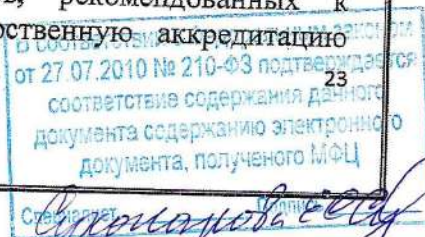 , рекомендованных к
рственную аккредитацию
В соответствии с законом
от 27.07.2010 № 210-ФЗ подтверждается
23
соответствие содержания данного
документа содержанию электронного
документа, полученого МФЦ
Специалист Подпись